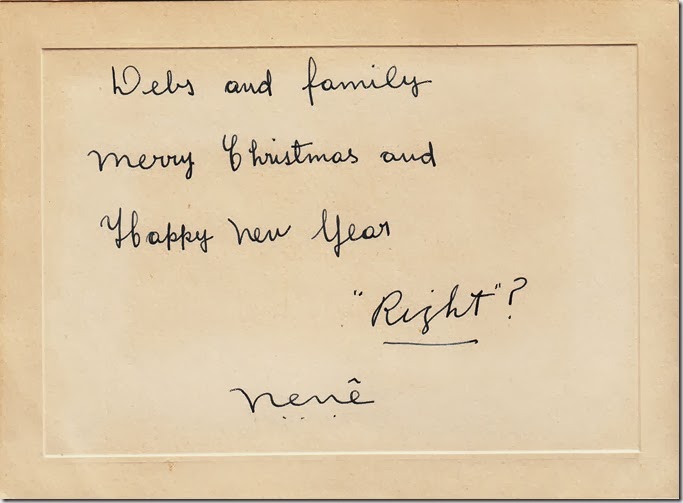 Webs and family
Merry Christmas and
Happy New Year
"Right"?
Nenê